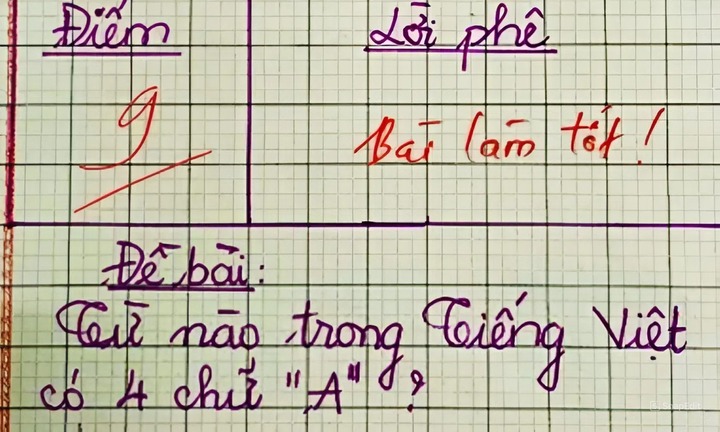 Điểm
Lời phê
9
Bài làm tốt!
Đề bài:
Từ nào trong Tiếng Việt
có 4 chữ "A"?